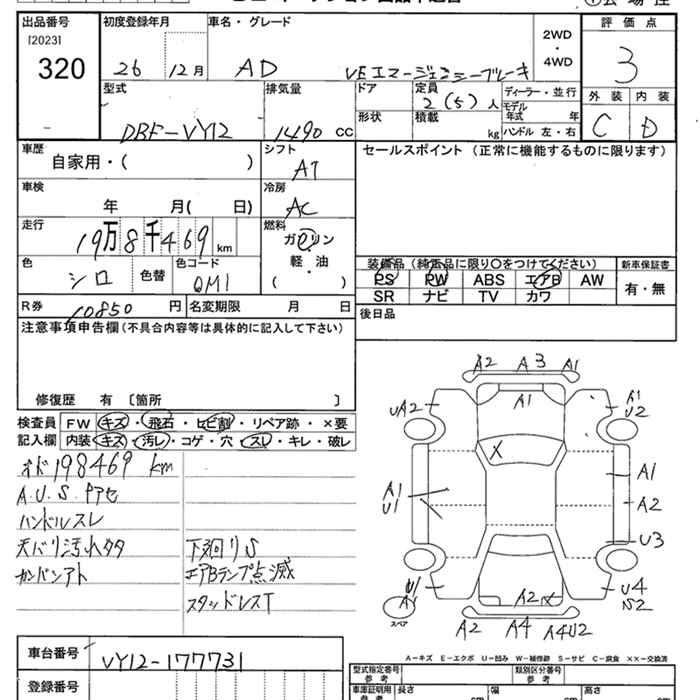 出品番号 初度登録年月 車名・グレード 評価点
[2023]
320
26年 12月 AD VEエマージェンシーブレーキ
2WD
・
4WD
3
外装 内装
C D
型式 排気量 ドア 定員 ディーラー・並行
2(5)人
モデル年式 年
形状 積載 kg ハンドル 左・右
DBF-VY12 1490 CC
車歴 シフト セールスポイント (正常に機能するものに限ります)
自家用・( ) AT
車検 冷房
年 月( 日) AC
走行 燃料
19万8千469km
ガソリン
・
軽・油
( )
色 色替 色コード
シロ QM1
装備品 (純正品に限り○をつけてください) 新車保証書
PS PW ABS エアB AW 有・無
SR ナビ TV カワ
R券 10850円 名変期限 月 日
後日品
注意事項申告欄 (不具合内容等は具体的に記入して下さい)
修復歴 有 〔箇所 〕
検査員 FW キズ・飛石・ヒビ割・リペア跡・×要
記入欄 内装 キズ・汚レ・コゲ・穴・スレ・キレ・破レ
オド198469km
A.U.S
ハンドルスレ
天バリ汚れタタ
カンバンアト
下廻りS
エアBランプ点滅
スタッドレスT
A2 A3 A1
UA2 A1 A1
U2
X
A1
U1
A1
A2
U3
U1
A1
スペア
A2 X
U4
S2
A2 A4 A4U2
A-キズ E-エクボ U-凹み W-補修跡 S-サビ C-腐食 XX-交換済
車台番号 VY12-177731
登録番号
型式指定番号 参考 類別区分番号 参考
車庫証明用 参考 長さ 幅 高さ